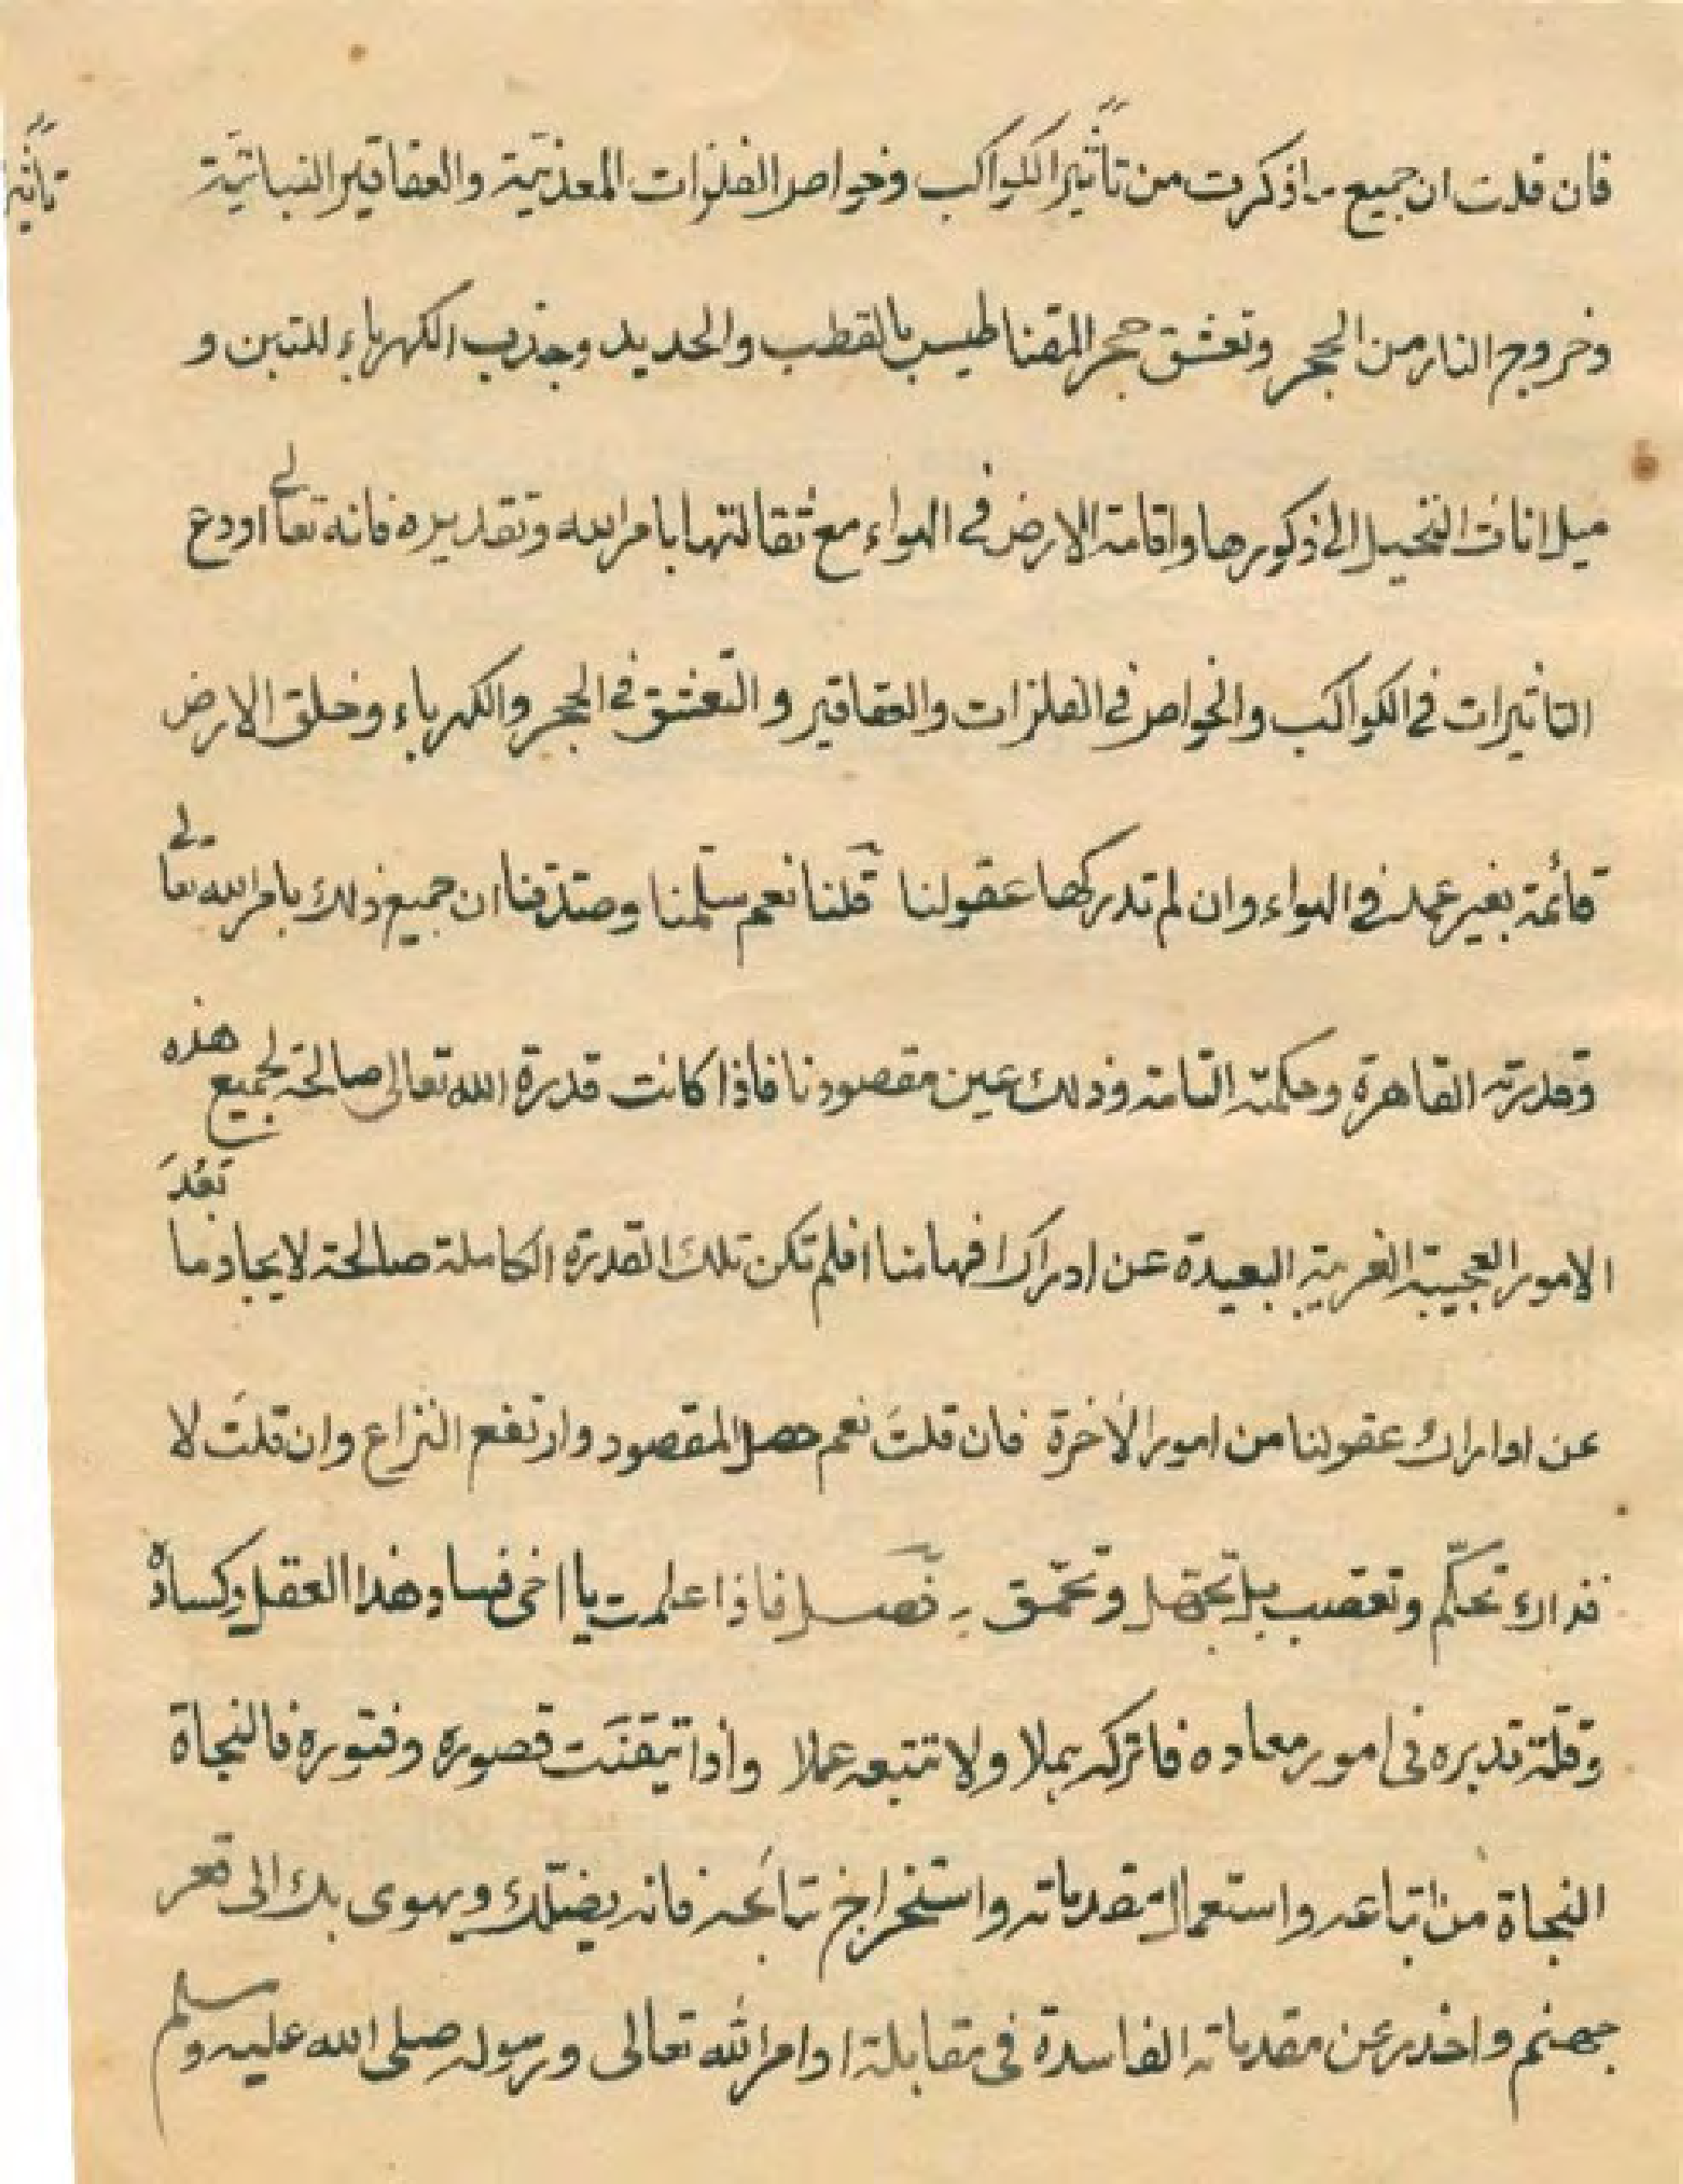 فان قلت ان جميع ما ذكرت من تأثير الكواكب وخواص الفلزات المعدنية والعقاقير النباتية
تأثير
وخروج النار من الحجر وتعشق حجر المقناطيس بالقطب والحديد وجذب الكهرباء للتبن و
ميل اناث النخيل الى ذكورها واقامة الارض في الهواء مع ثقالتها بامر الله وتقديره فانه تعالى اودع
التأثيرات في الكواكب والخواص في الفلزات والعقاقير والتعشق في الحجر والكهرباء وخلق الارض
قائمة بغير عمد في الهواء وان لم تدركها عقولنا قلنا نعم سلمنا وصدقنا ان جميع ذلك بامر الله تعالى
وقدرته القاهرة وحكمته التامة وذلك عين مقصودنا فاذا كانت قدرة الله تعالى صالحة لجميع هذه
الامور العجيبة الغريبة البعيدة عن ادراك افهامنا افلم تكن تلك القدرة الكاملة صالحة لايجاد ما بَعُدَ
عن ادراك عقولنا من امور الآخرة فان قلتَ نعم حصل المقصود وارتفع النزاع وان قلتَ لا
فذاك تحكّم وتعصب بل تجهل وتحمّق فصل فاذا علمت يا اخى فساد هذا العقل وكساده
وقلة تدبره فى امور معاده فاتركه ولا تتبعه عملا واذا تيقنتَ قصوره وفتوره فالنجاة
النجاة من اتباعه واستعمال مقدماته واستخراج نتائجه فانه يضلّك ويهوى بك الى قعر
جهنم واحذر عن مقدماته الفاسدة فى مقابلة اوامر الله تعالى ورسوله صلى الله عليه وسلم